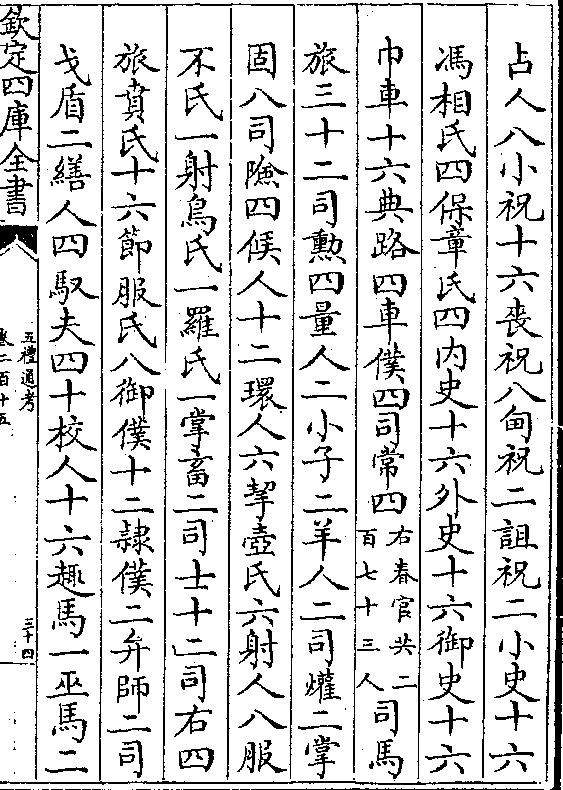 占人八小祝十六喪祝八甸祝二詛祝二小史十六
馮相氏四保章氏四内史十六外史十六御史十六
巾車十六典路四車僕四司常四右春官共二百七十三人司馬
旅三十二司勲四量人二小子二羊人二司爟二掌
固八司險四候人十二環人六挈壺氏六射人八服
不氏一射鳥氏一羅氏一掌畜二司士十二司右四
旅賁氏十六節服氏八御僕十二隷僕二弁師二司
戈盾二繕人四馭夫四十校人十六趣馬一巫馬二
欽定四庫全書
五禮通考
卷二百十五
三十四